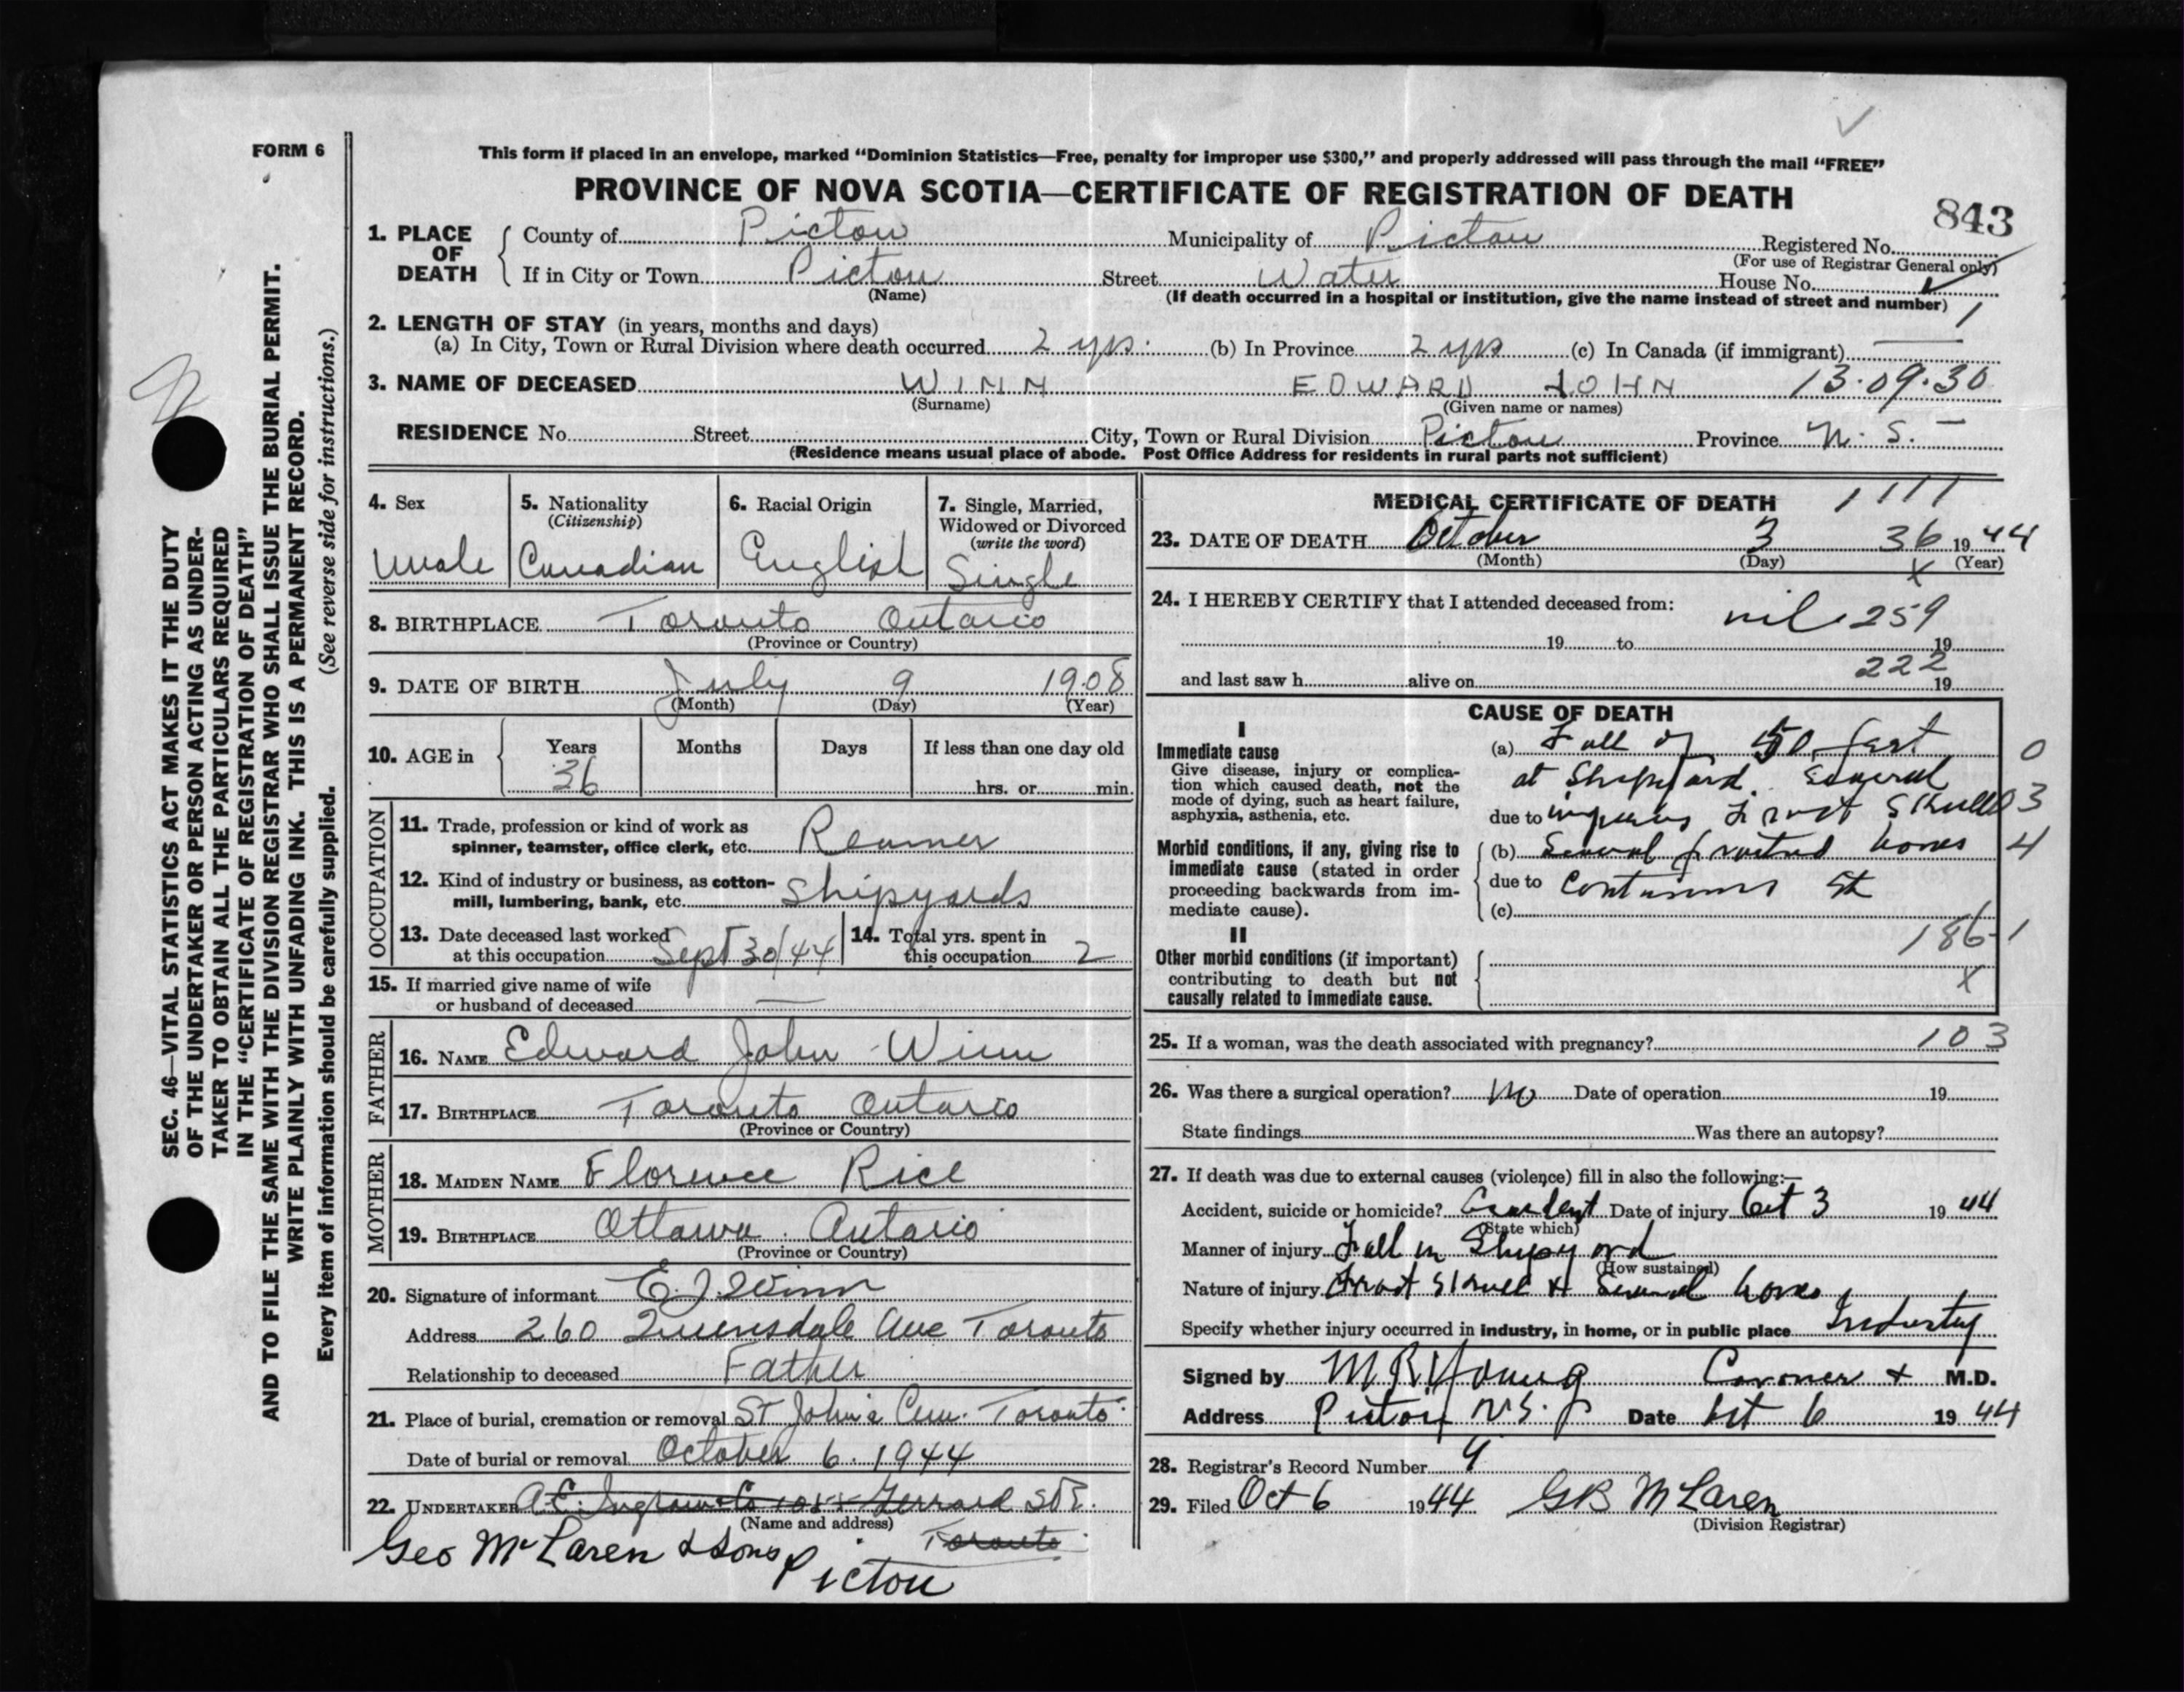 FORM 6
This form if placed in an envelope, marked "Dominion Statistics—Free, penalty for improper use $300," and properly addressed will pass through the mail "FREE"
PROVINCE OF NOVA SCOTIA—CERTIFICATE OF REGISTRATION OF DEATH
843
1. PLACE OF DEATH
County of Pictou Municipality of Pictou Registered No.
(For use of Registrar General only)
If in City or Town Pictou Street Water House No.
(Name) (If death occurred in a hospital or institution, give the name instead of street and number) 1
2. LENGTH OF STAY (in years, months and days)
(a) In City, Town or Rural Division where death occurred 2 yrs. (b) In Province 2 yrs (c) In Canada (if immigrant) —
3. NAME OF DECEASED WINN EDWARD JOHN 13.09.30
(Surname) (Given name or names)
RESIDENCE No. Street City, Town or Rural Division Pictou Province N.S.
(Residence means usual place of abode. Post Office Address for residents in rural parts not sufficient)
4. Sex
male
5. Nationality
(Citizenship)
Canadian
6. Racial Origin
English
7. Single, Married,
Widowed or Divorced
(write the word)
Single
8. BIRTHPLACE Toronto Ontario
(Province or Country)
9. DATE OF BIRTH July 9 1908
(Month) (Day) (Year)
10. AGE in Years Months Days If less than one day old
36 hrs. or min.
OCCUPATION
11. Trade, profession or kind of work as
spinner, teamster, office clerk, etc. Reamer
12. Kind of industry or business, as cotton-
mill, lumbering, bank, etc. Shipyards
13. Date deceased last worked
at this occupation Sept 30/44
14. Total yrs. spent in
this occupation 2
15. If married give name of wife
or husband of deceased —
FATHER
16. NAME Edward John Winn
17. BIRTHPLACE Toronto Ontario
(Province or Country)
MOTHER
18. MAIDEN NAME Florence Rice
19. BIRTHPLACE Ottawa. Ontario
(Province or Country)
20. Signature of informant E. J. Winn
Address 260 Queensdale Ave Toronto
Relationship to deceased Father
21. Place of burial, cremation or removal St John's Cem. Toronto
Date of burial or removal October 6. 1944
22. UNDERTAKER Gerrard St E.
(Name and address) Toronto
Geo McLaren & Sons Pictou
MEDICAL CERTIFICATE OF DEATH 1111
23. DATE OF DEATH October 3 36 1944
(Month) (Day) x (Year)
24. I HEREBY CERTIFY that I attended deceased from:
nil 259
19 to 19
222
and last saw h alive on 19
CAUSE OF DEATH
I
Immediate cause
Give disease, injury or complica-
tion which caused death, not the
mode of dying, such as heart failure,
asphyxia, asthenia, etc.
(a) Fall of 50 feet 0
at Shipyard. Several
due to injuries Fract Skull 03
Morbid conditions, if any, giving rise to
immediate cause (stated in order
proceeding backwards from im-
mediate cause).
(b) Several fractured bones 4
due to Contusions
(c)
186-1
II
Other morbid conditions (if important)
contributing to death but not
causally related to immediate cause.
x
25. If a woman, was the death associated with pregnancy? 103
26. Was there a surgical operation? No Date of operation 19
State findings Was there an autopsy?
27. If death was due to external causes (violence) fill in also the following:—
Accident, suicide or homicide? Accident Date of injury Oct 3 1944
(State which)
Manner of injury Fall in Shipyard
(How sustained)
Nature of injury Fract Skull & Several bones
Specify whether injury occurred in industry, in home, or in public place Industry
Signed by M R Young Coroner & M.D.
Address Pictou N.S. Date Oct 6 1944
28. Registrar's Record Number 9
29. Filed Oct 6 1944 GB McLaren
(Division Registrar)
SEC. 46—VITAL STATISTICS ACT MAKES IT THE DUTY
OF THE UNDERTAKER OR PERSON ACTING AS UNDER-
TAKER TO OBTAIN ALL THE PARTICULARS REQUIRED
IN THE "CERTIFICATE OF REGISTRATION OF DEATH"
AND TO FILE THE SAME WITH THE DIVISION REGISTRAR WHO SHALL ISSUE THE BURIAL PERMIT.
WRITE PLAINLY WITH UNFADING INK. THIS IS A PERMANENT RECORD.
Every item of information should be carefully supplied. (See reverse side for instructions.)